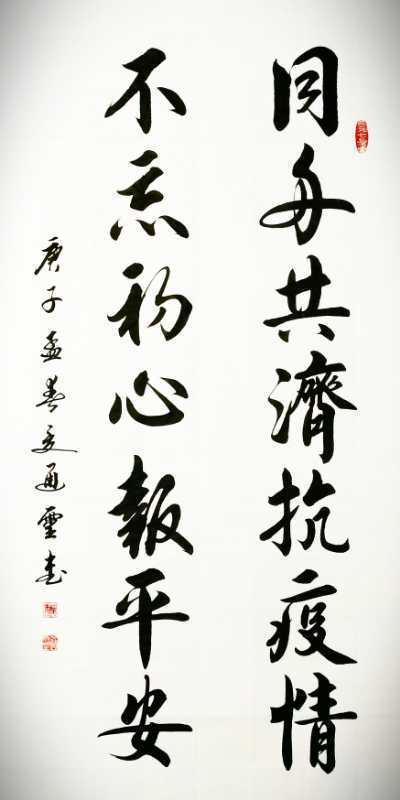 同舟共濟抗疫情
不忘初心報平安
庚子孟春通書